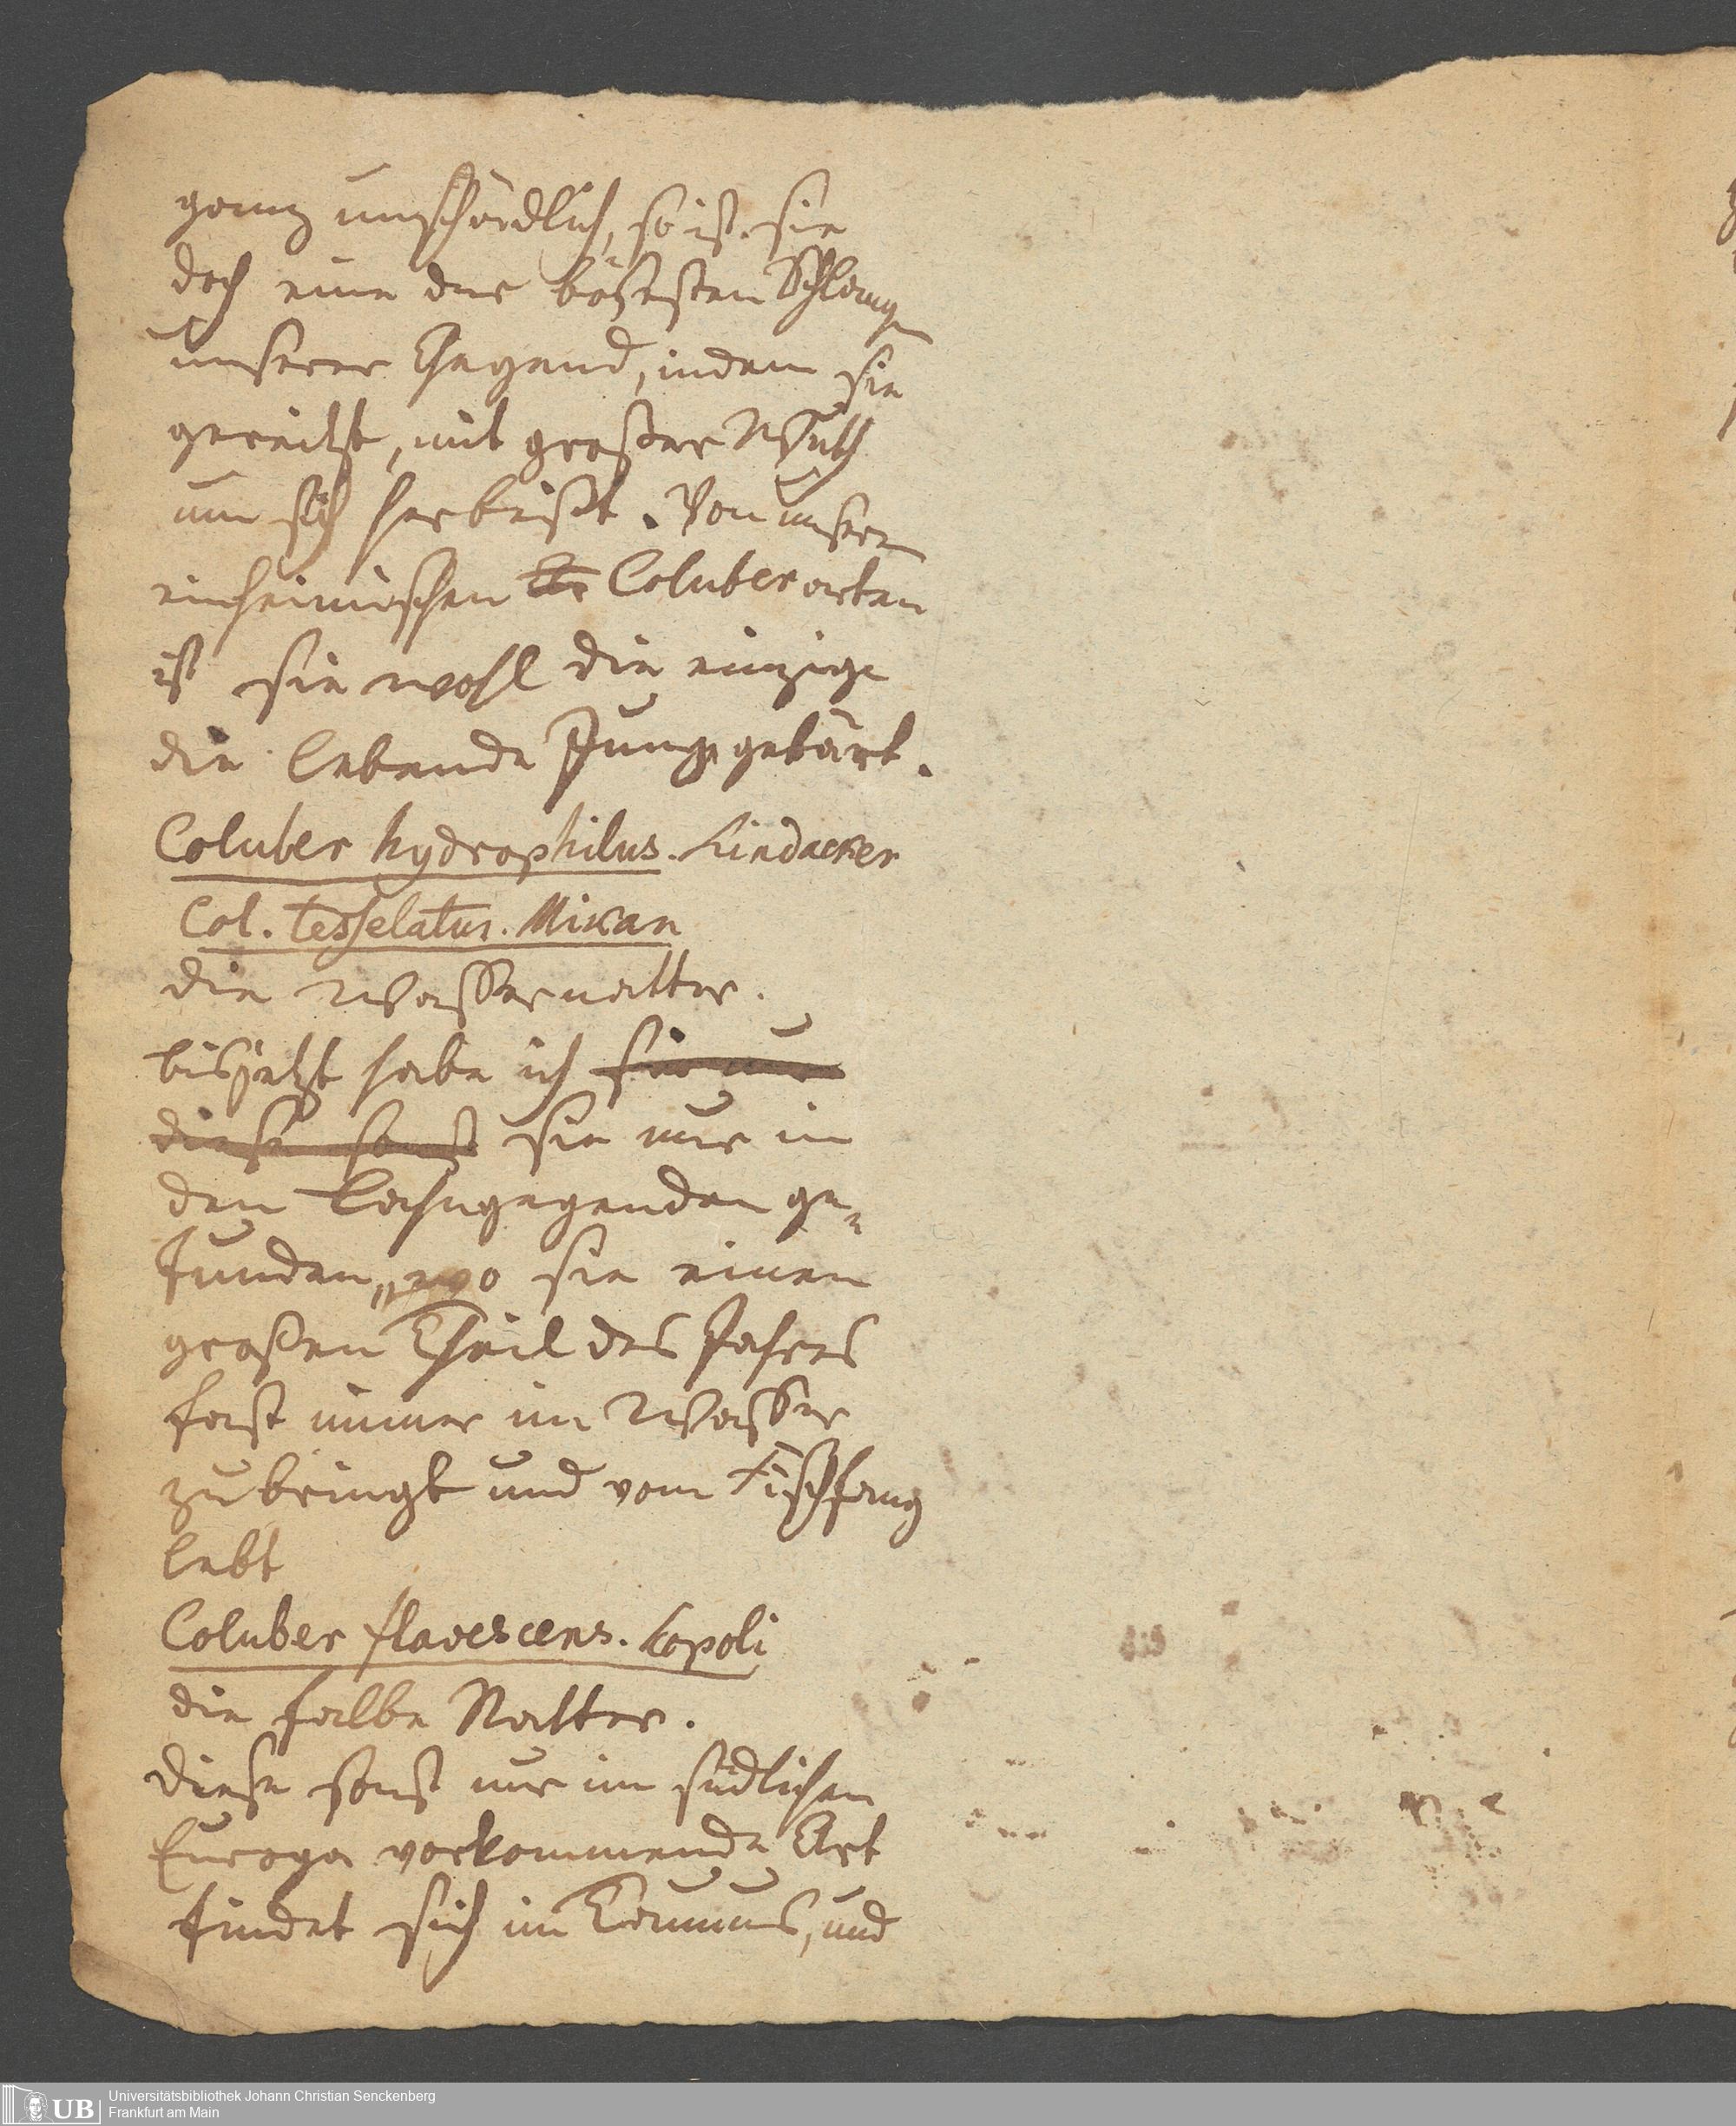 ganz unschädlich, so ist sie
doch eine der bösesten Schlangen
unserer Gegend, indem sie
gereitzt, mit großer Wuth
um sich herbeißt. Von unseren
einheimischen Coluberarten
ist sie wohl die einzige
die lebende Junge gebärt.
Coluber hydrophilus. Lindacker
Col. tesselatus. Mikan
die Wassernatter.
bisjetzt habe ich sie nur
diese sonst sie nur in
den Lahngegenden ge-
funden, wo sie einen
großen Theil des Jahres
fast immer im Wasser
zubringt und vom Fischfang
lebt
Coluber flavescens. Scopoli
die falbe Natter.
Diese sonst nur im südlichen
Europa vorkommende Art
findet sich im Taunus, und
UB
Universitätsbibliothek Johann Christian Senckenberg
Frankfurt am Main